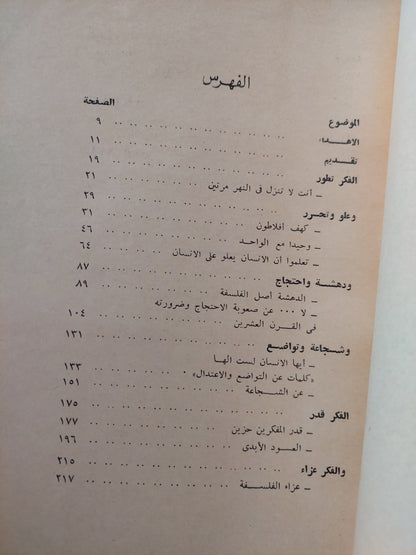 الفهرس
الموضوع الصفحة
الاهداء .. .. .. .. .. .. .. .. .. .. ٩
تقديم .. .. .. .. .. .. .. .. .. .. ١١
الفكر تطور .. .. .. .. .. .. .. .. .. ١٩
ـ أنت لا تنزل فى النهر مرتين .. .. .. .. .. ٢١
وعلو وتحرر .. .. .. .. .. .. .. .. .. ٢٩
ـ كهف أفلاطون .. .. .. .. .. .. .. ٣١
ـ وحيدا مع الواحد .. .. .. .. .. .. .. ٤٦
ـ تعلموا أن الانسان يعلو على الانسان .. .. .. ٦٤
ودهشة واحتجاج .. .. .. .. .. .. .. .. ٨٧
ـ الدهشة أصل الفلسفة .. .. .. .. .. .. ٨٩
ـ لا ٠٠٠ عن صعوبة الاحتجاج وضرورته
فى القرن العشرين .. .. .. .. .. .. ١٠٤
وشجاعة وتواضع .. .. .. .. .. .. .. .. ١٣١
ـ أيها الانسان لست الها
«كلمات عن التواضع والاعتدال» .. .. .. .. ١٣٣
ـ عن الشجاعة .. .. .. .. .. .. .. ١٥١
الفكر قدر .. .. .. .. .. .. .. .. .. ١٧٥
ـ قدر المفكرين حزين .. .. .. .. .. .. ١٧٧
ـ العود الأبدى .. .. .. .. .. .. .. ١٩٦
والفكر عزاء .. .. .. .. .. .. .. .. .. ٢١٥
ـ عزاء الفلسفة .. .. .. .. .. .. .. ٢١٧